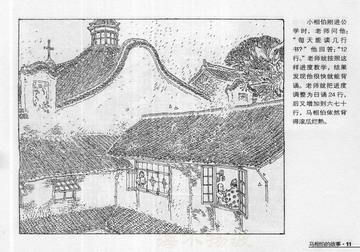 小相伯刚进公
学时,老师问他:
“每天能读几行
书?”他回答:“12
行。”老师就按照这
样进度教学,结果
发现他很快就能背
诵。老师就把进度
调整为日诵24行,
后又增加到六七十
行,马相伯依然背
得滚瓜烂熟。
马相伯的故事·11